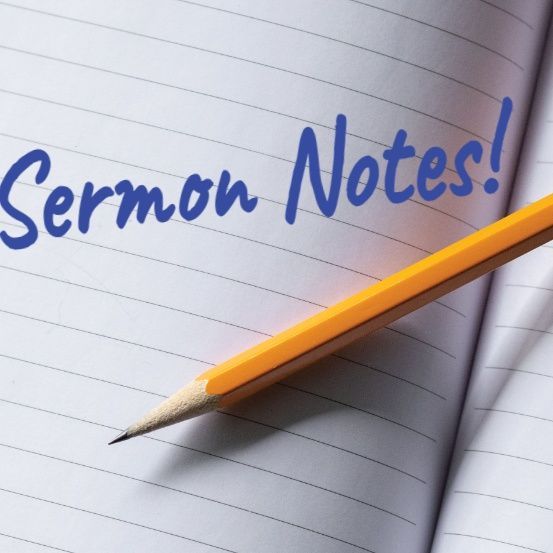 Sermon Notes!